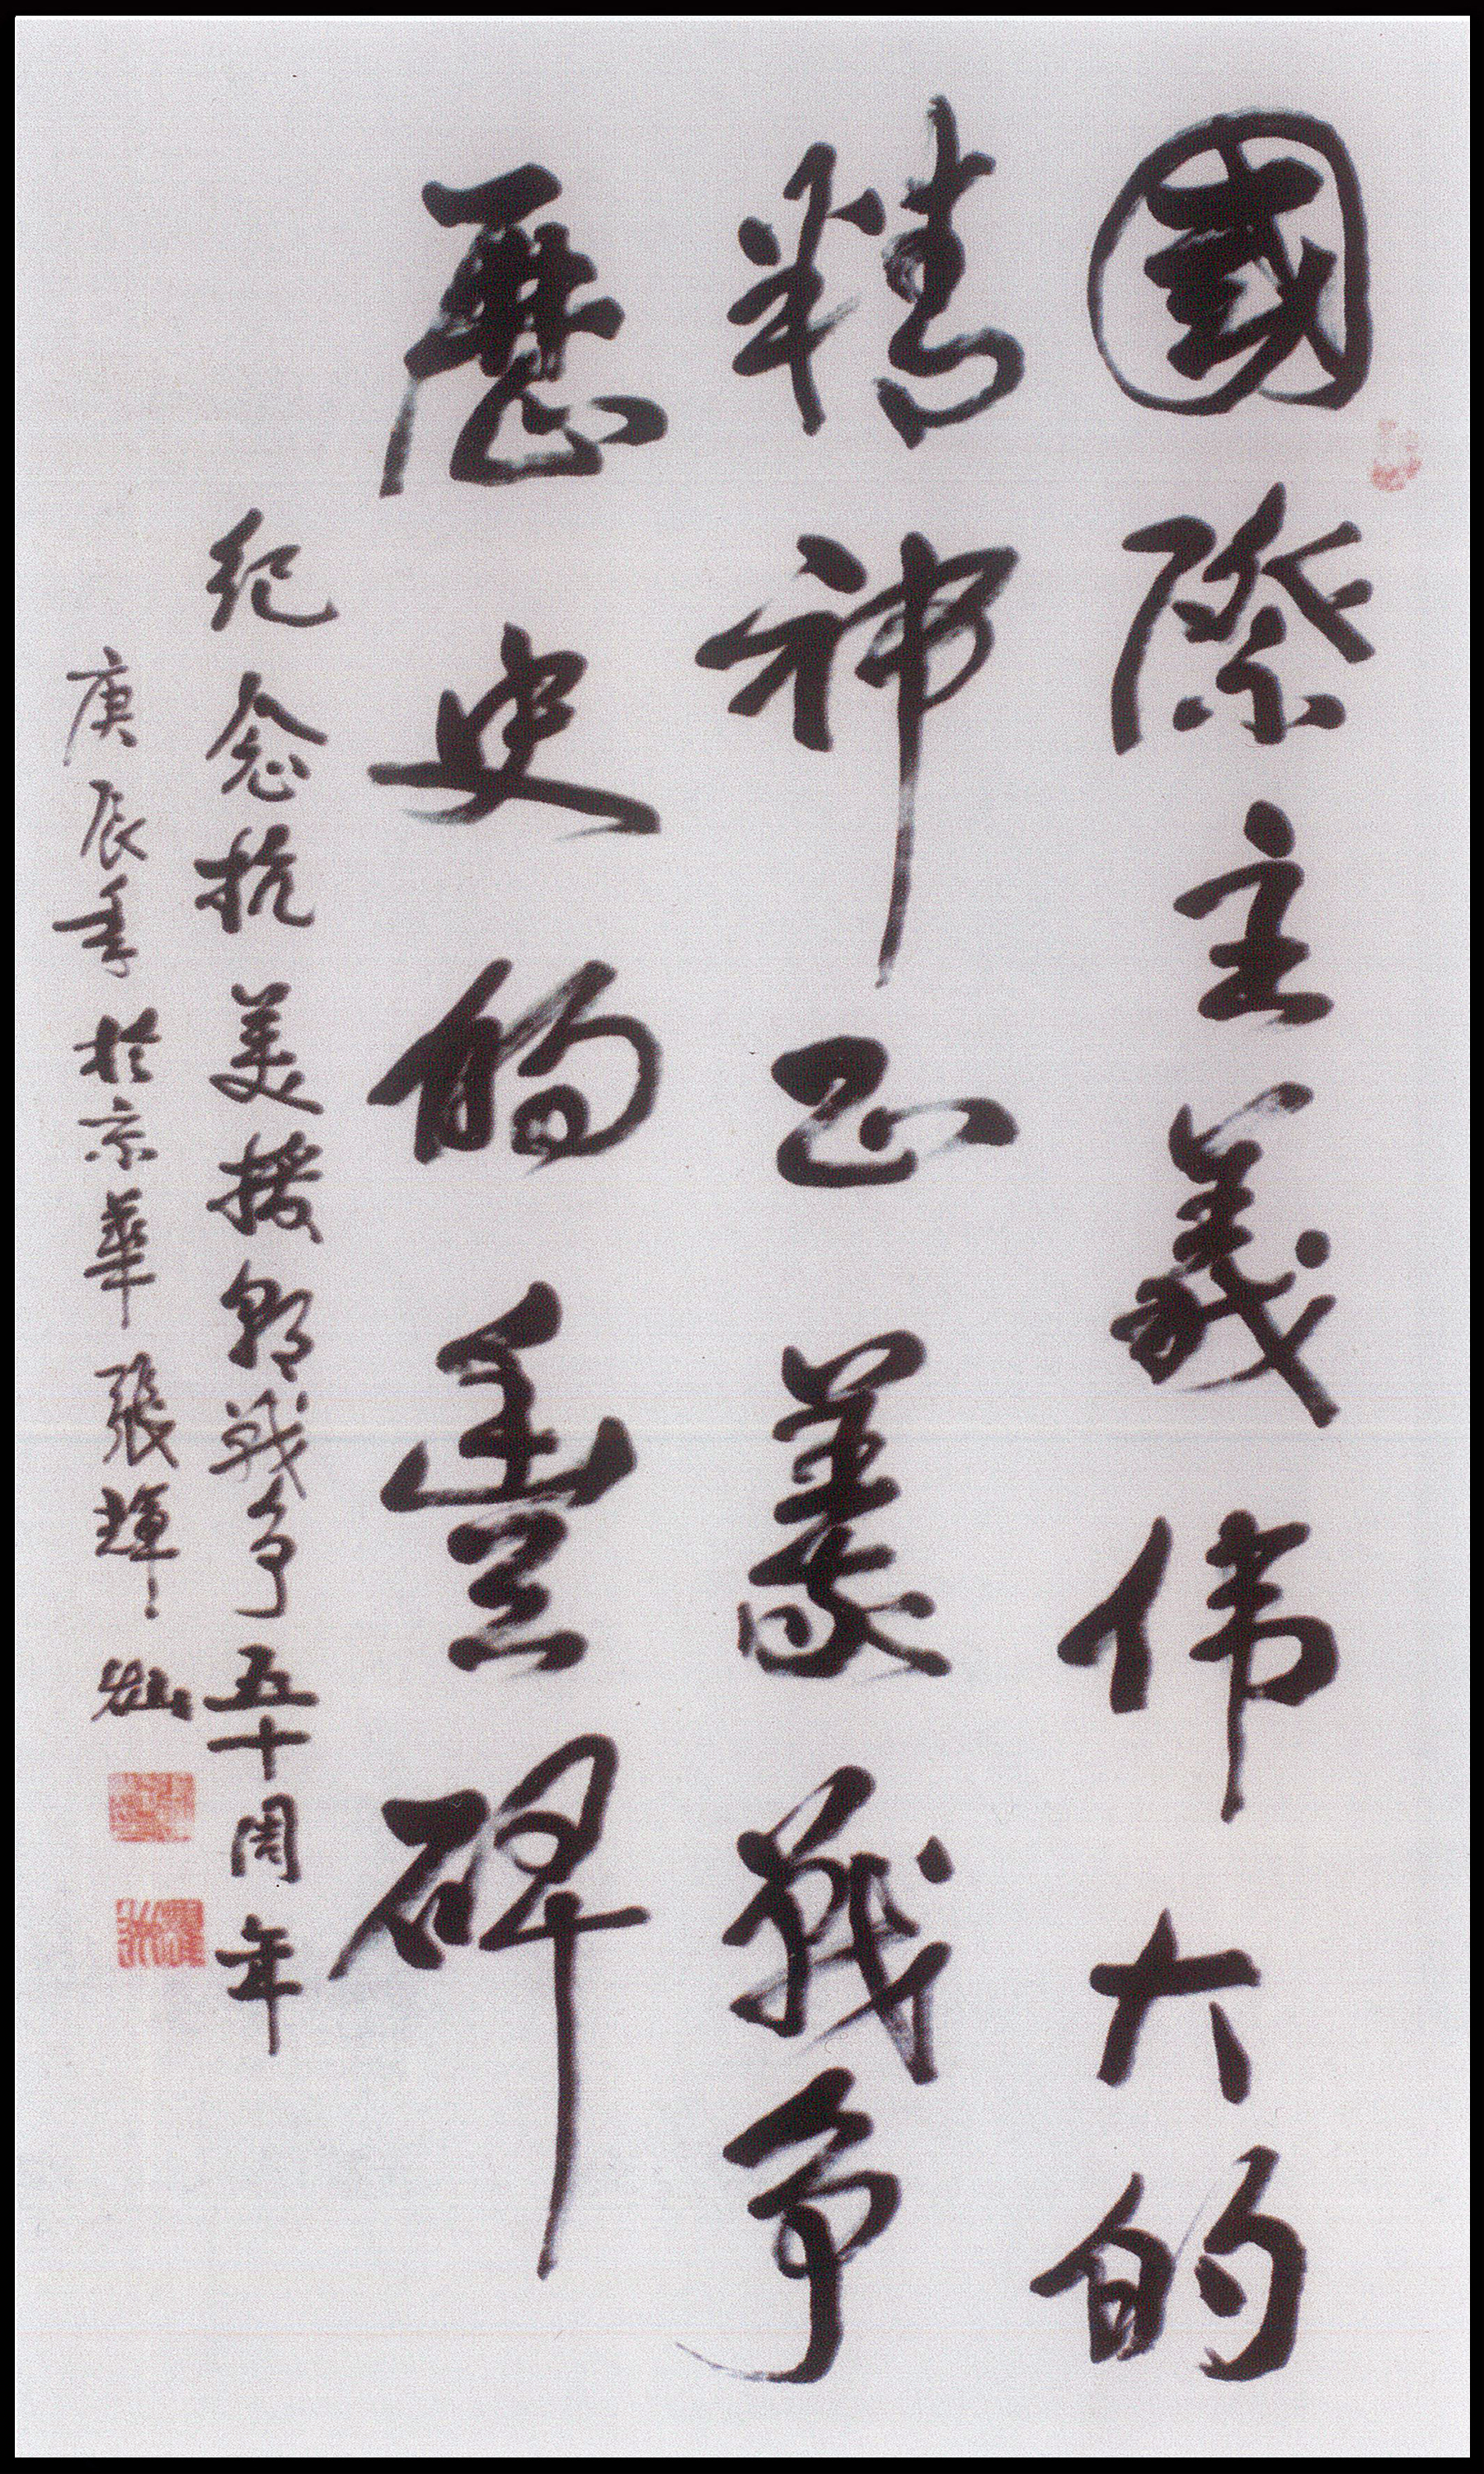 國際主義伟大的
精神正義戰争
歷史的豊碑
纪念抗美援朝战争五十周年
庚辰年於京華張輝灿